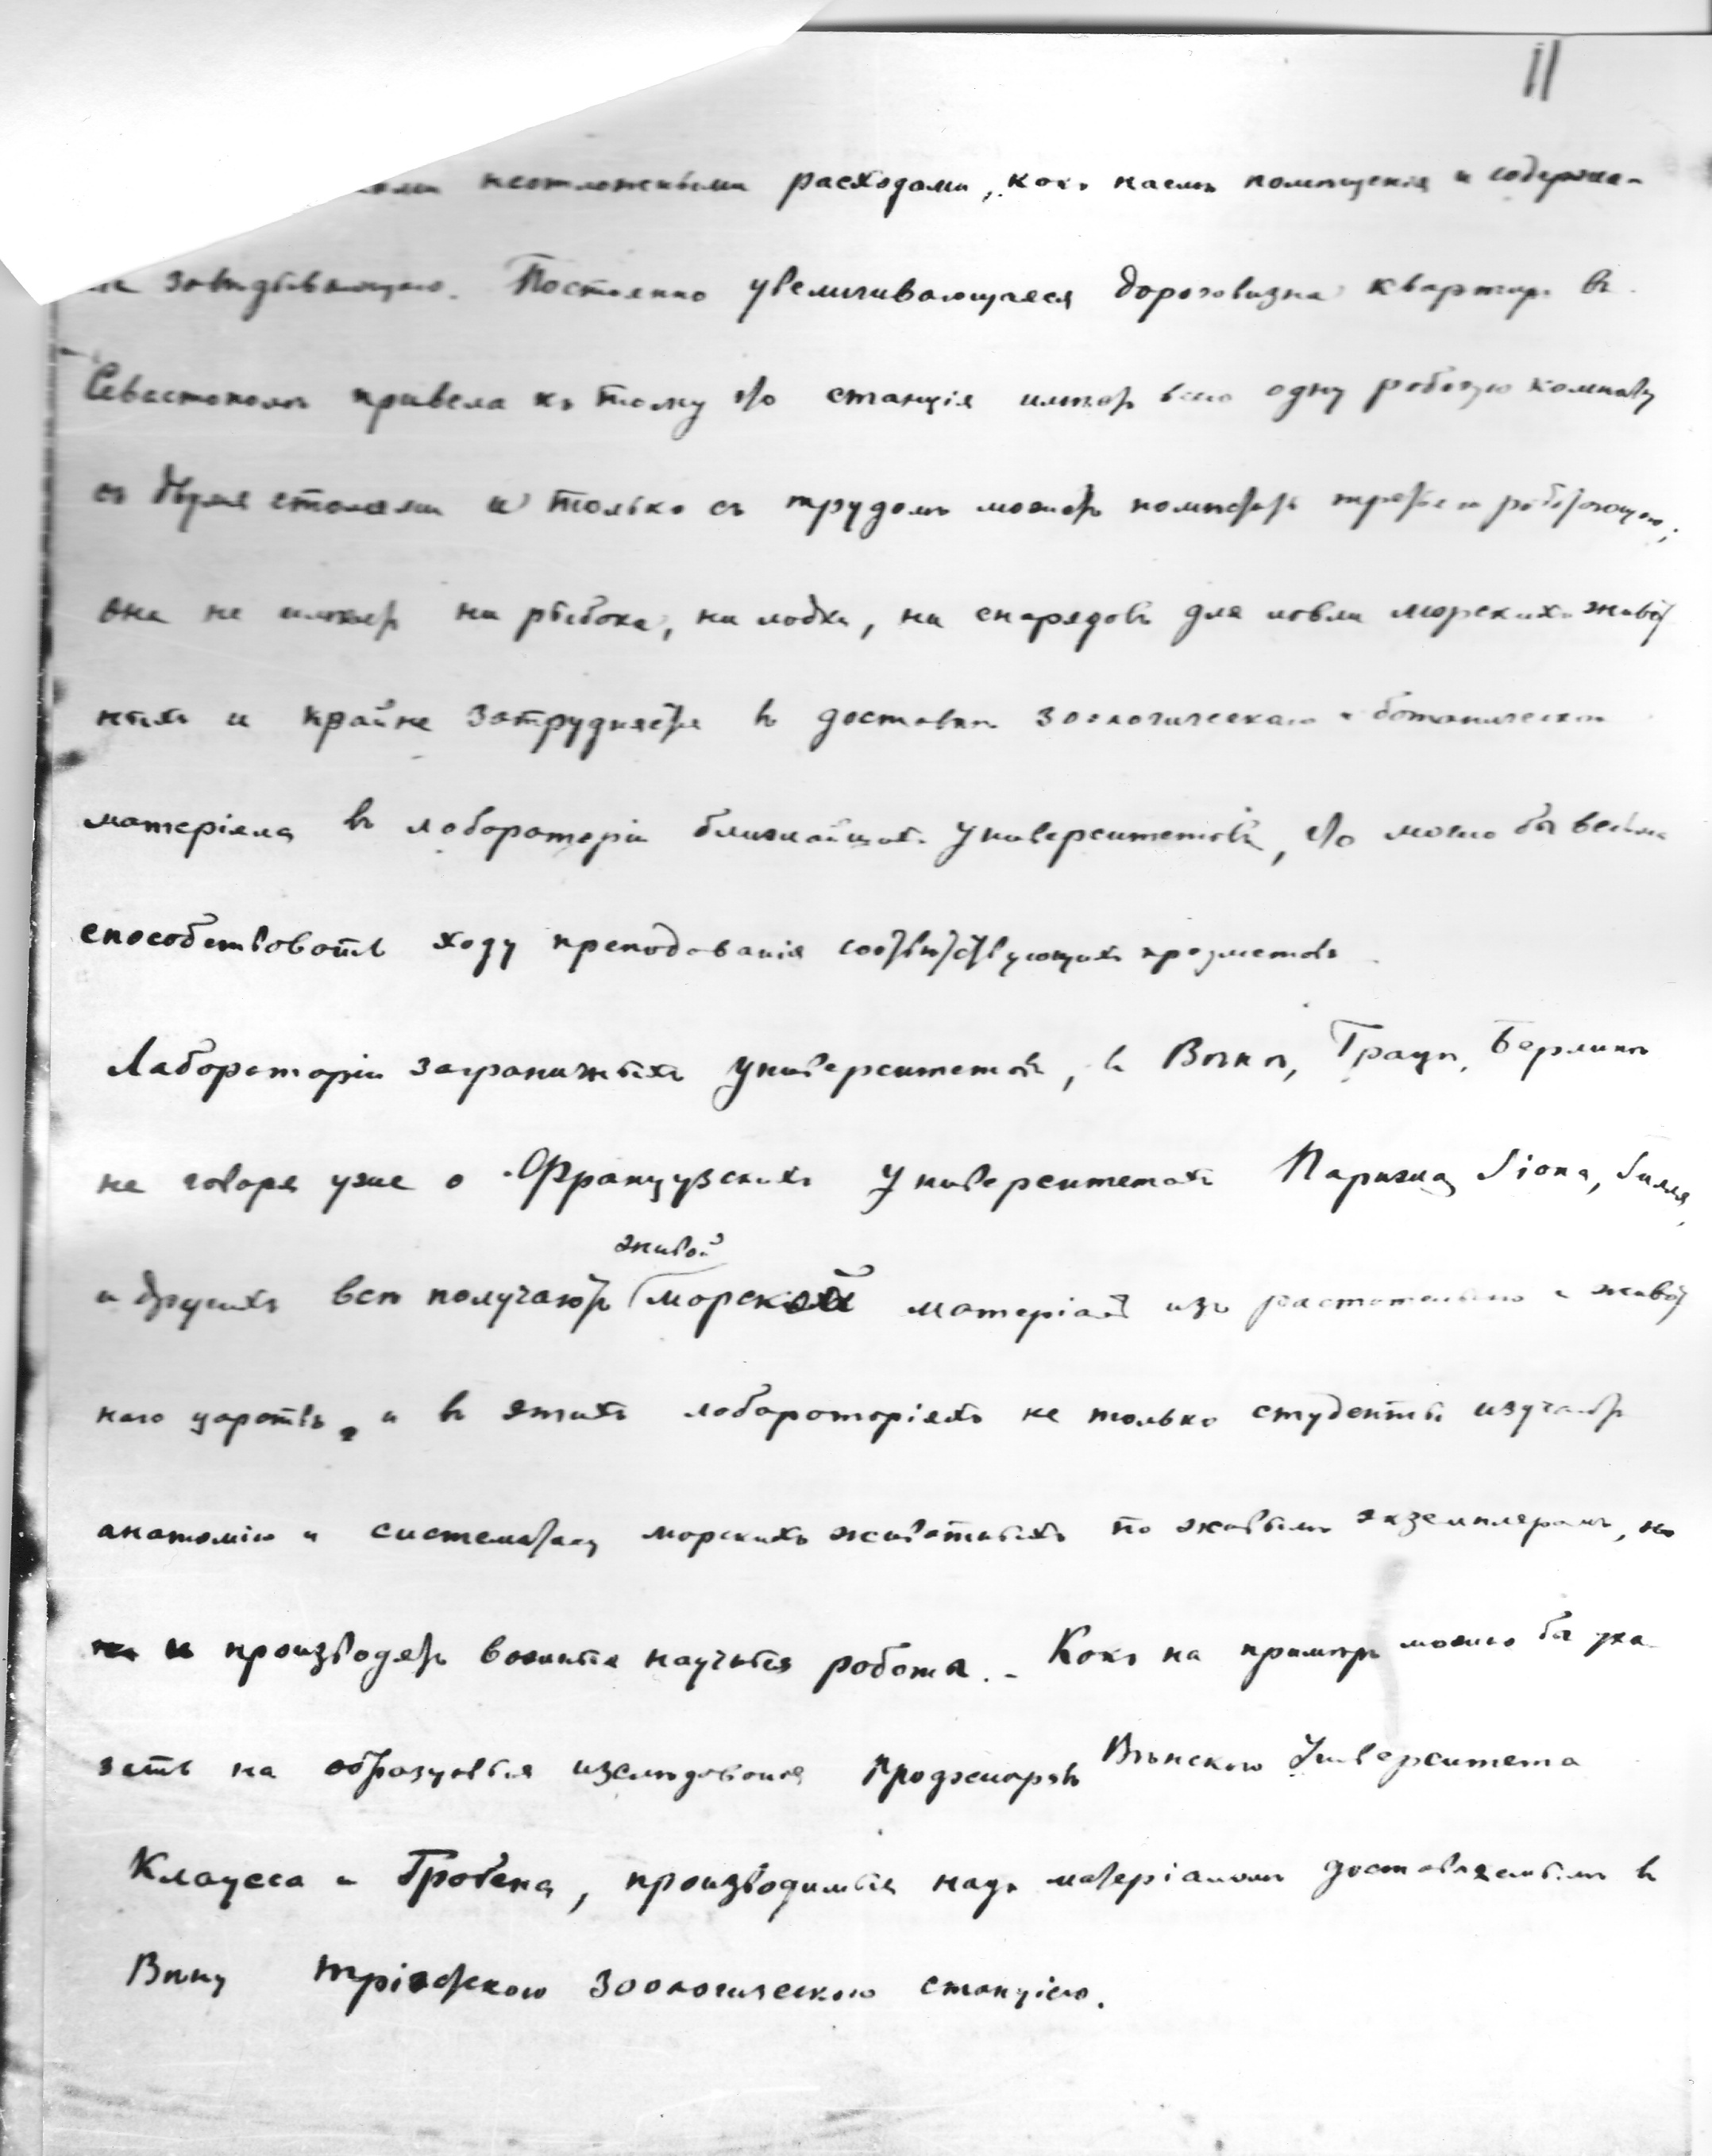 11
неотложными расходами, какъ наемъ помѣщенія и содержа-
завѣдывающаго. Постоянно увеличивающаяся дороговизна квартиръ въ
Севастополѣ привела къ тому что станція имѣетъ всего одну рабочую комнату
съ двумя столами и только съ трудомъ можетъ помѣстить третьяго работающаго;
она не имѣетъ ни рыбака, ни лодки, ни снарядовъ для ловли морскихъ живот
ныхъ и крайне затрудняется въ доставкѣ зоологическаго и ботаническаго
матеріяла въ лабораторіи ближайшихъ университетовъ, что могло бы весьма
способствовать ходу преподаванія соотвѣтствующихъ предметовъ.
Лабораторіи заграничныхъ университетовъ, въ Вѣнѣ, Грацѣ, Берлинѣ
не говоря уже о Французскихъ университетахъ Парижа, Ліона, Лилля,
живой
и другихъ всѣ получаютъ морской матеріалъ изъ растительнаго и живот
наго царствъ, и въ этихъ лабораторіяхъ не только студенты изучаютъ
анатомію и систематику морскихъ животныхъ по живымъ экземплярамъ, но
и производятъ научныя работы. - Какъ на примѣръ можно бы ука-
зать на образцовыя изслѣдованія профессоровъ Вѣнскаго Университета
Клауса и Гробена, производимыя надъ матеріаломъ доставляемымъ въ
Вѣну тріестскою зоологическою станціею.